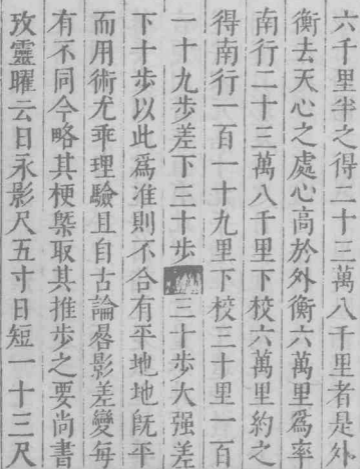 六千里半之得二十三萬八千里者是外
衡去天心之處心高於外衡六萬里爲率
南行二十三萬八千里下校六萬里約之
得南行一百一十九里下校三十里一百
一十九步差下三十步三十步大强差
下十步以此爲准則不合有平地地旣平
而用術尤乖理驗且自古論晷影差變每
有不同今略其梗槩取其推步之要尚書
攷靈曜云日永影尺五寸日短一十三尺